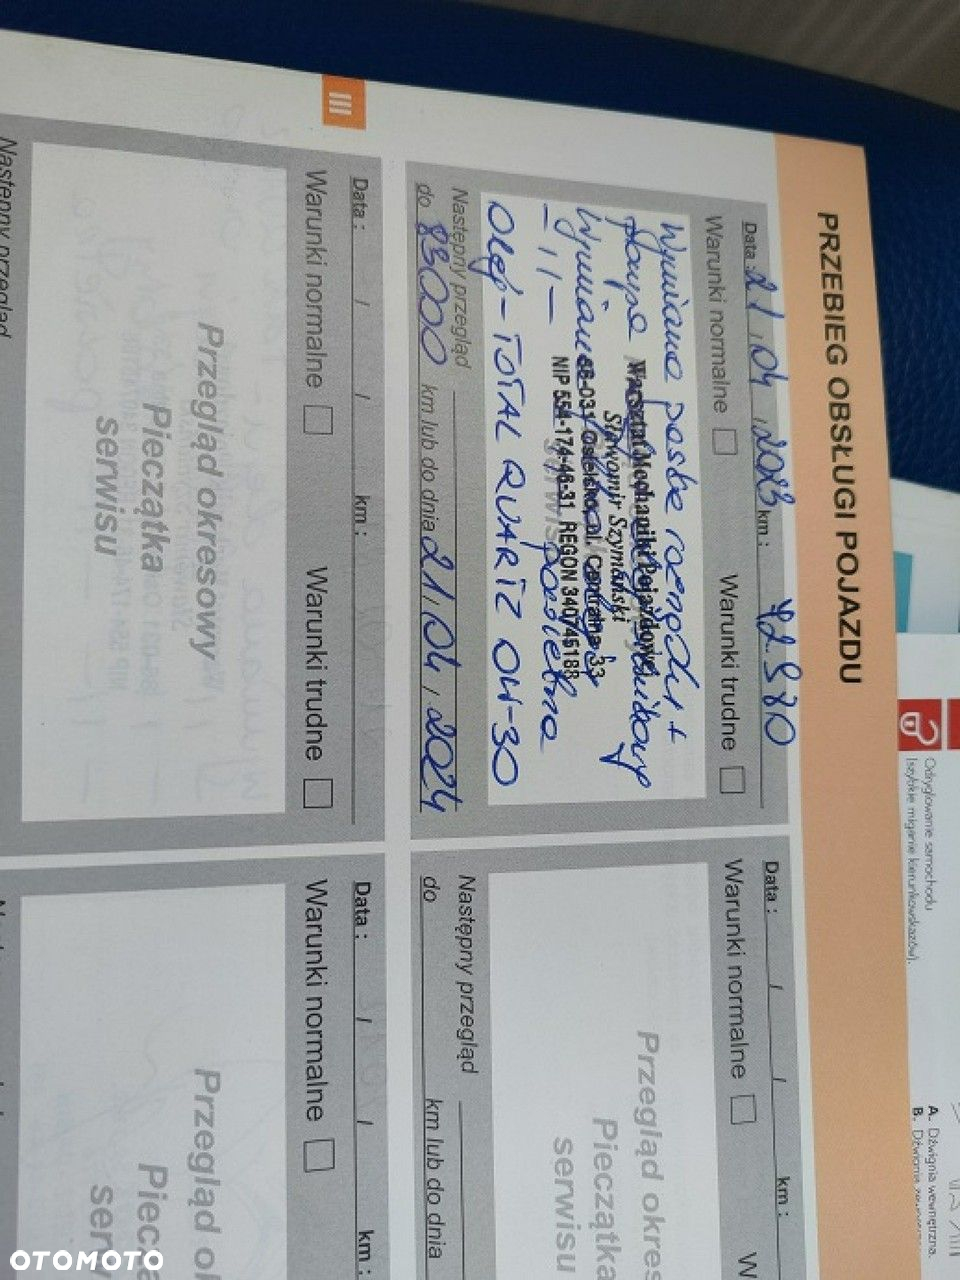 PRZEBIEG OBSŁUGI POJAZDU
Data : 21, 04, 2023 km : 72 980
Warunki normalne Warunki trudne
Wymiana paska rozrządu +
pompa
Warsztat Mechaniki Pojazdowej
Sławomir Szymański
86-031 Osielsko, ul. Centralna 33
NIP 554-174-46-31 REGON 34074518
Wymiana
- 11 -
Olej - TOTAL QUARTZ 0W-30
Następny przegląd
do 83000 km lub do dnia 21, 04, 2024
Data : / / km :
Warunki normalne Warunki trudne
Przegląd okresowy
Pieczątka
serwisu
Następny przegląd
III
Data : / / km :
Warunki normalne W
Przegląd okres
Pieczątka
serwisu
Następny przegląd
do km lub do dnia
Data : / / km :
Warunki normalne
Przegląd o
Pieczą
ser
Odryglowanie samochodu
(szybkie miganie kierunkowskazów).
A. Dźwignia wewnętrzna.
B. Dźwignia
OTOMOTO